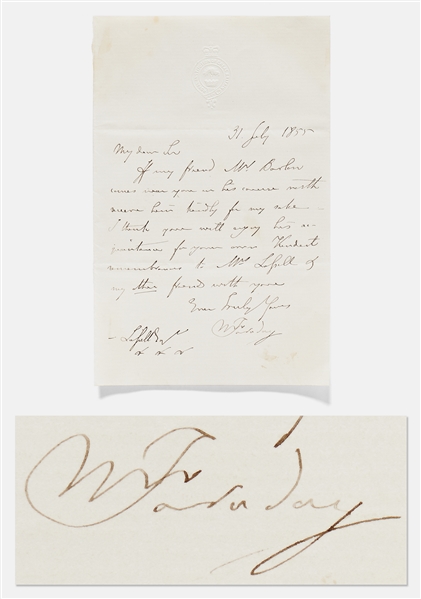 31 July 1855
My dear Sir
If my friend Mr. Barlow
comes near you in his course north
receive him kindly for my sake -
I think you will enjoy his ac-
quaintance for your own Kindest
remembrances to Mrs. &
my other friend with you
Ever Truly Yours
M Faraday
&c &c &c
M Faraday